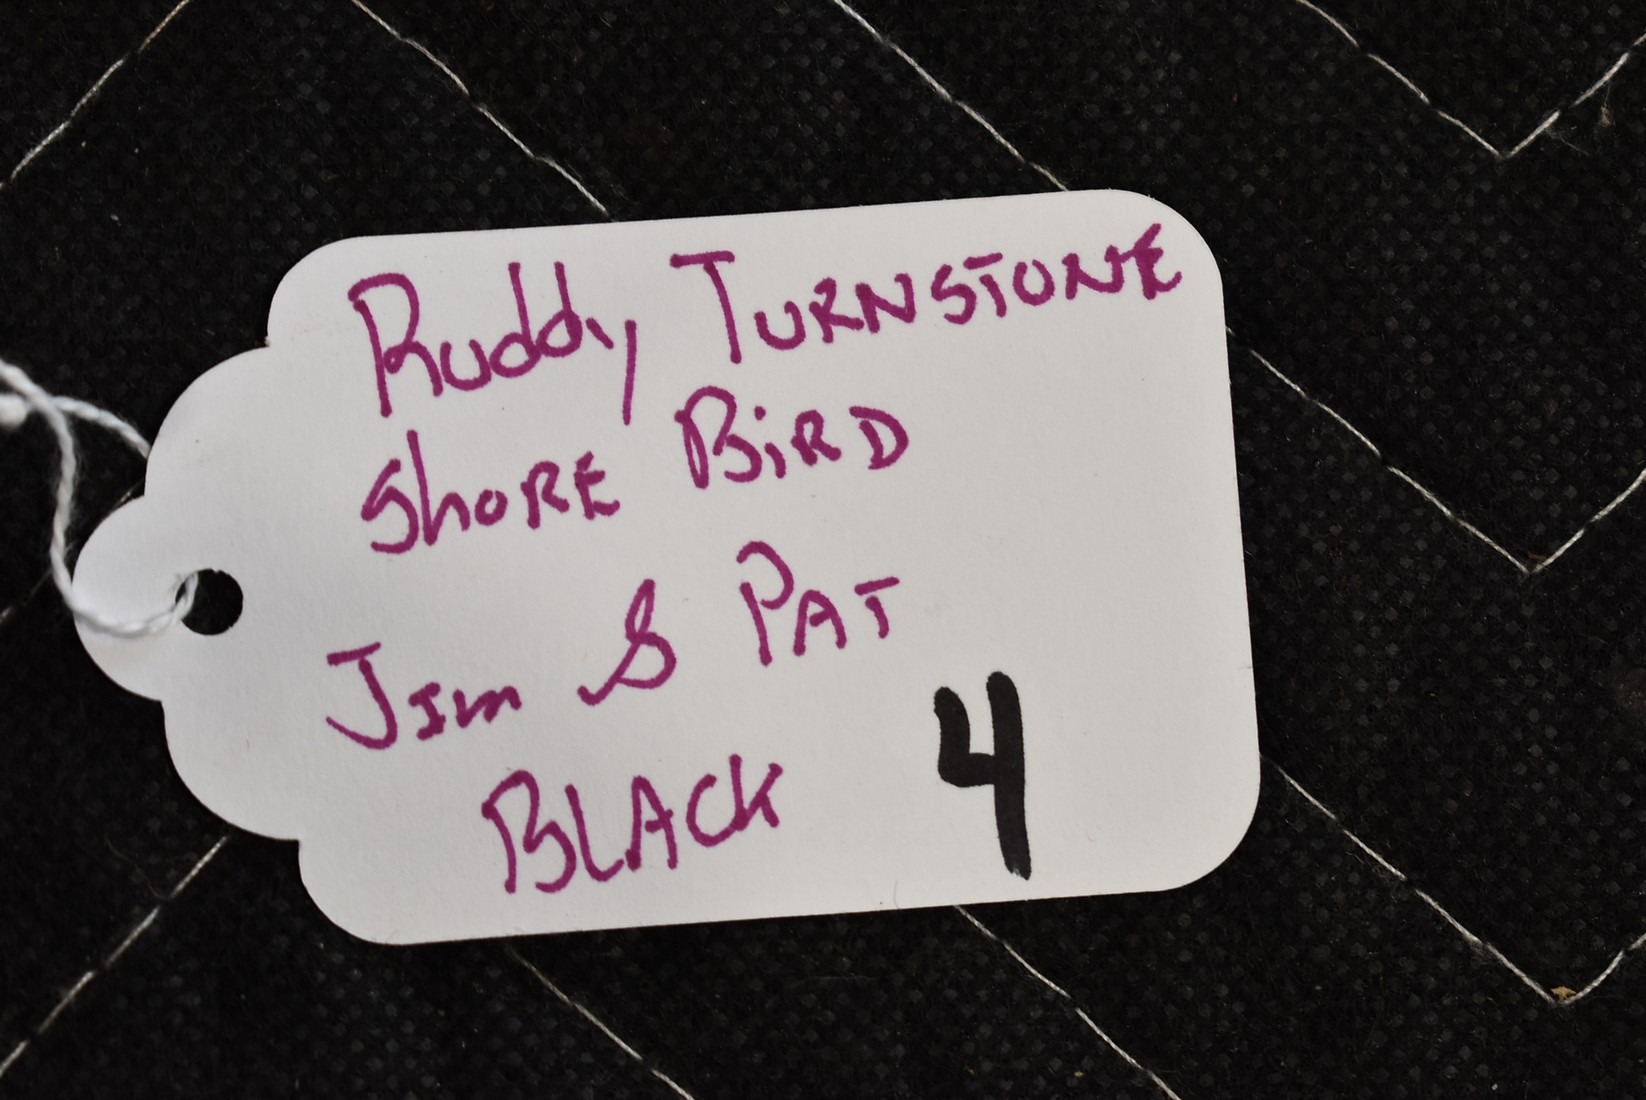 Ruddy TURNSTONE
ShORE BiRD
JIm & PAT
BLACK 4